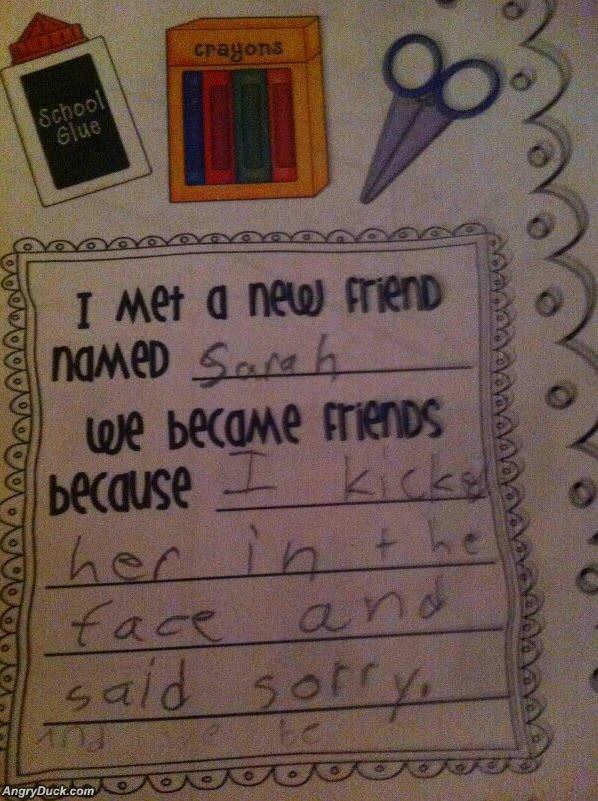 School
Glue
crayons
I met a new friend
named Sarah
We became friends
because I kicked
her in the
face and
said sorry.
and we
AngryDuck.com